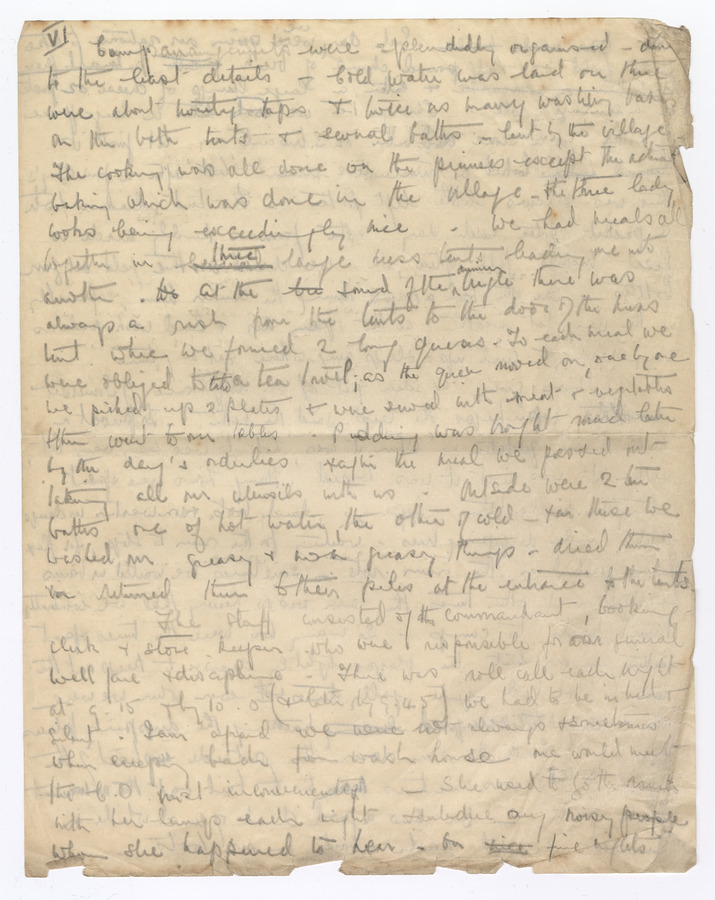 VI
Camp arrangements were splendidly organised - down
to the least details - Cold water was laid on there
were about twenty taps & twice as many washing basins
on the bath tents & several baths - lent by the village.
The cooking was all done on the premises except the actual
baking which was done in the village - the three lady
cooks being exceedingly nice - We had meals all
together in three large mess tents leading one into
another. At the sound of the dinner bugle there was
always a rush from the tents to the door of the mess
tent where we formed 2 long queues - To each meal we
were obliged to take a tea towel; as the queue moved on, one by one
we picked up 2 plates & were served with meat & vegetables
& then went to our tables. Pudding was brought round later
by the day's orderlies & after the meal we passed out
taking all our utensils with us. Outside were 2 tin
baths one of hot water, the other of cold - & in these we
washed our greasy & non greasy things - dried them
& returned them to their piles at the entrance to the tents.
The staff consisted of the Commandant, booking
clerk & store keeper who were responsible for our general
welfare & discipline - There was roll call each night
at 9.15 & by 10.0 (& later by 9.45) we had to be in bed &
silent. I am afraid we were not always & sometimes
when creeping back from wash house one would meet
the C.O. most inconveniently - She used to go the rounds
with her lamp each night & subdue any noisy people
whom she happened to hear - On fine nights